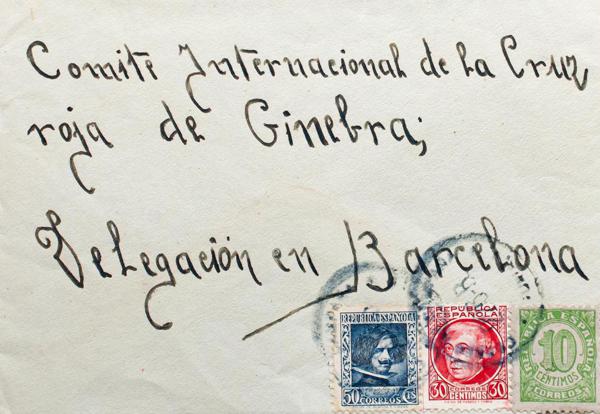 Comité Internacional de la Cruz
roja de Ginebra;
Delegación en Barcelona
REPUBLICA ESPAÑOLA
50 CORREOS CTS
REPUBLICA
ESPAÑOLA
30 CORREOS 30
CENTIMOS
REPUBLICA ESPAÑOLA
10
CENTIMOS
CORREOS